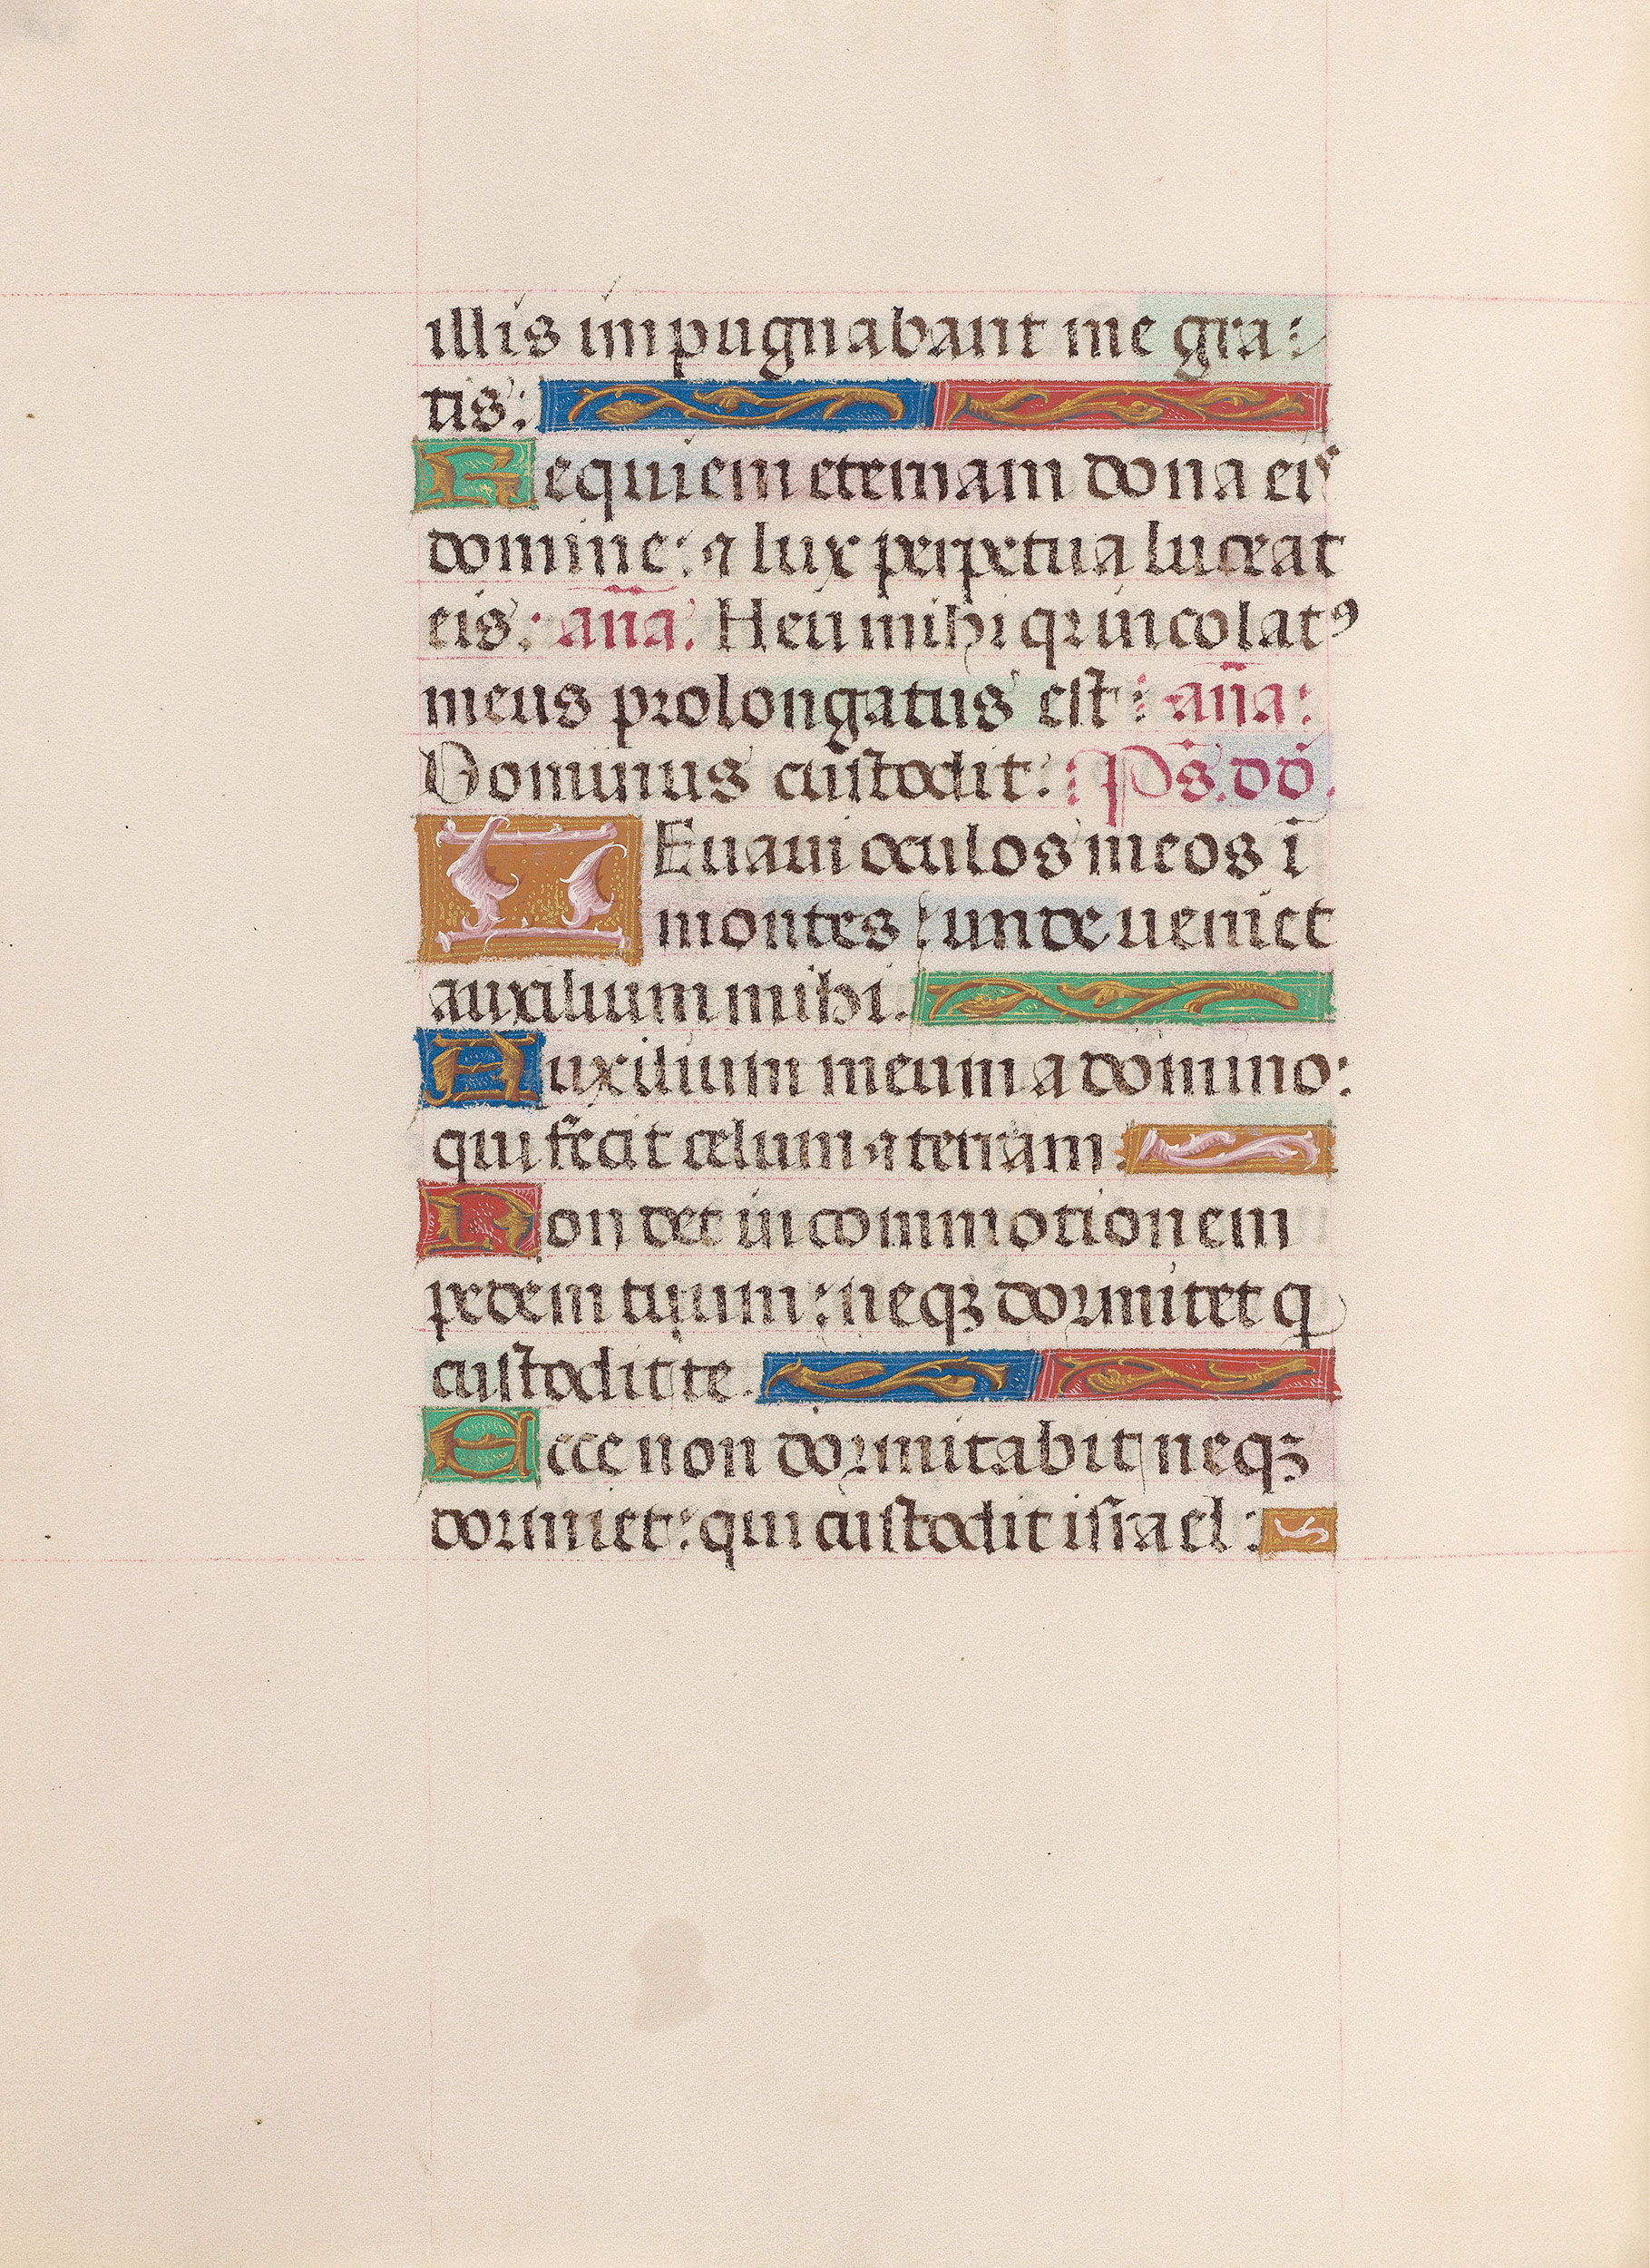 illis impugnabant me gra:
tis:
Requiem eternam dona eis
domine: ⁊ lux perpetua luceat
eis: an̄a. Heu mihi qꝛ incolatꝰ
meus prolongatus est: an̄a:
Dominus custodit: Ps̄. dd̄.
LEuaui oculos meos ī
montes: unde ueniet
auxilium mihi.
Auxilium meum a domino:
qui fecit celum ⁊ terram.
Non det in commotionem
pedem tuum: neqꝫ dormitet q
custodit te.
Ecce non dormitabit neqꝫ
dormiet: qui custodit israel: